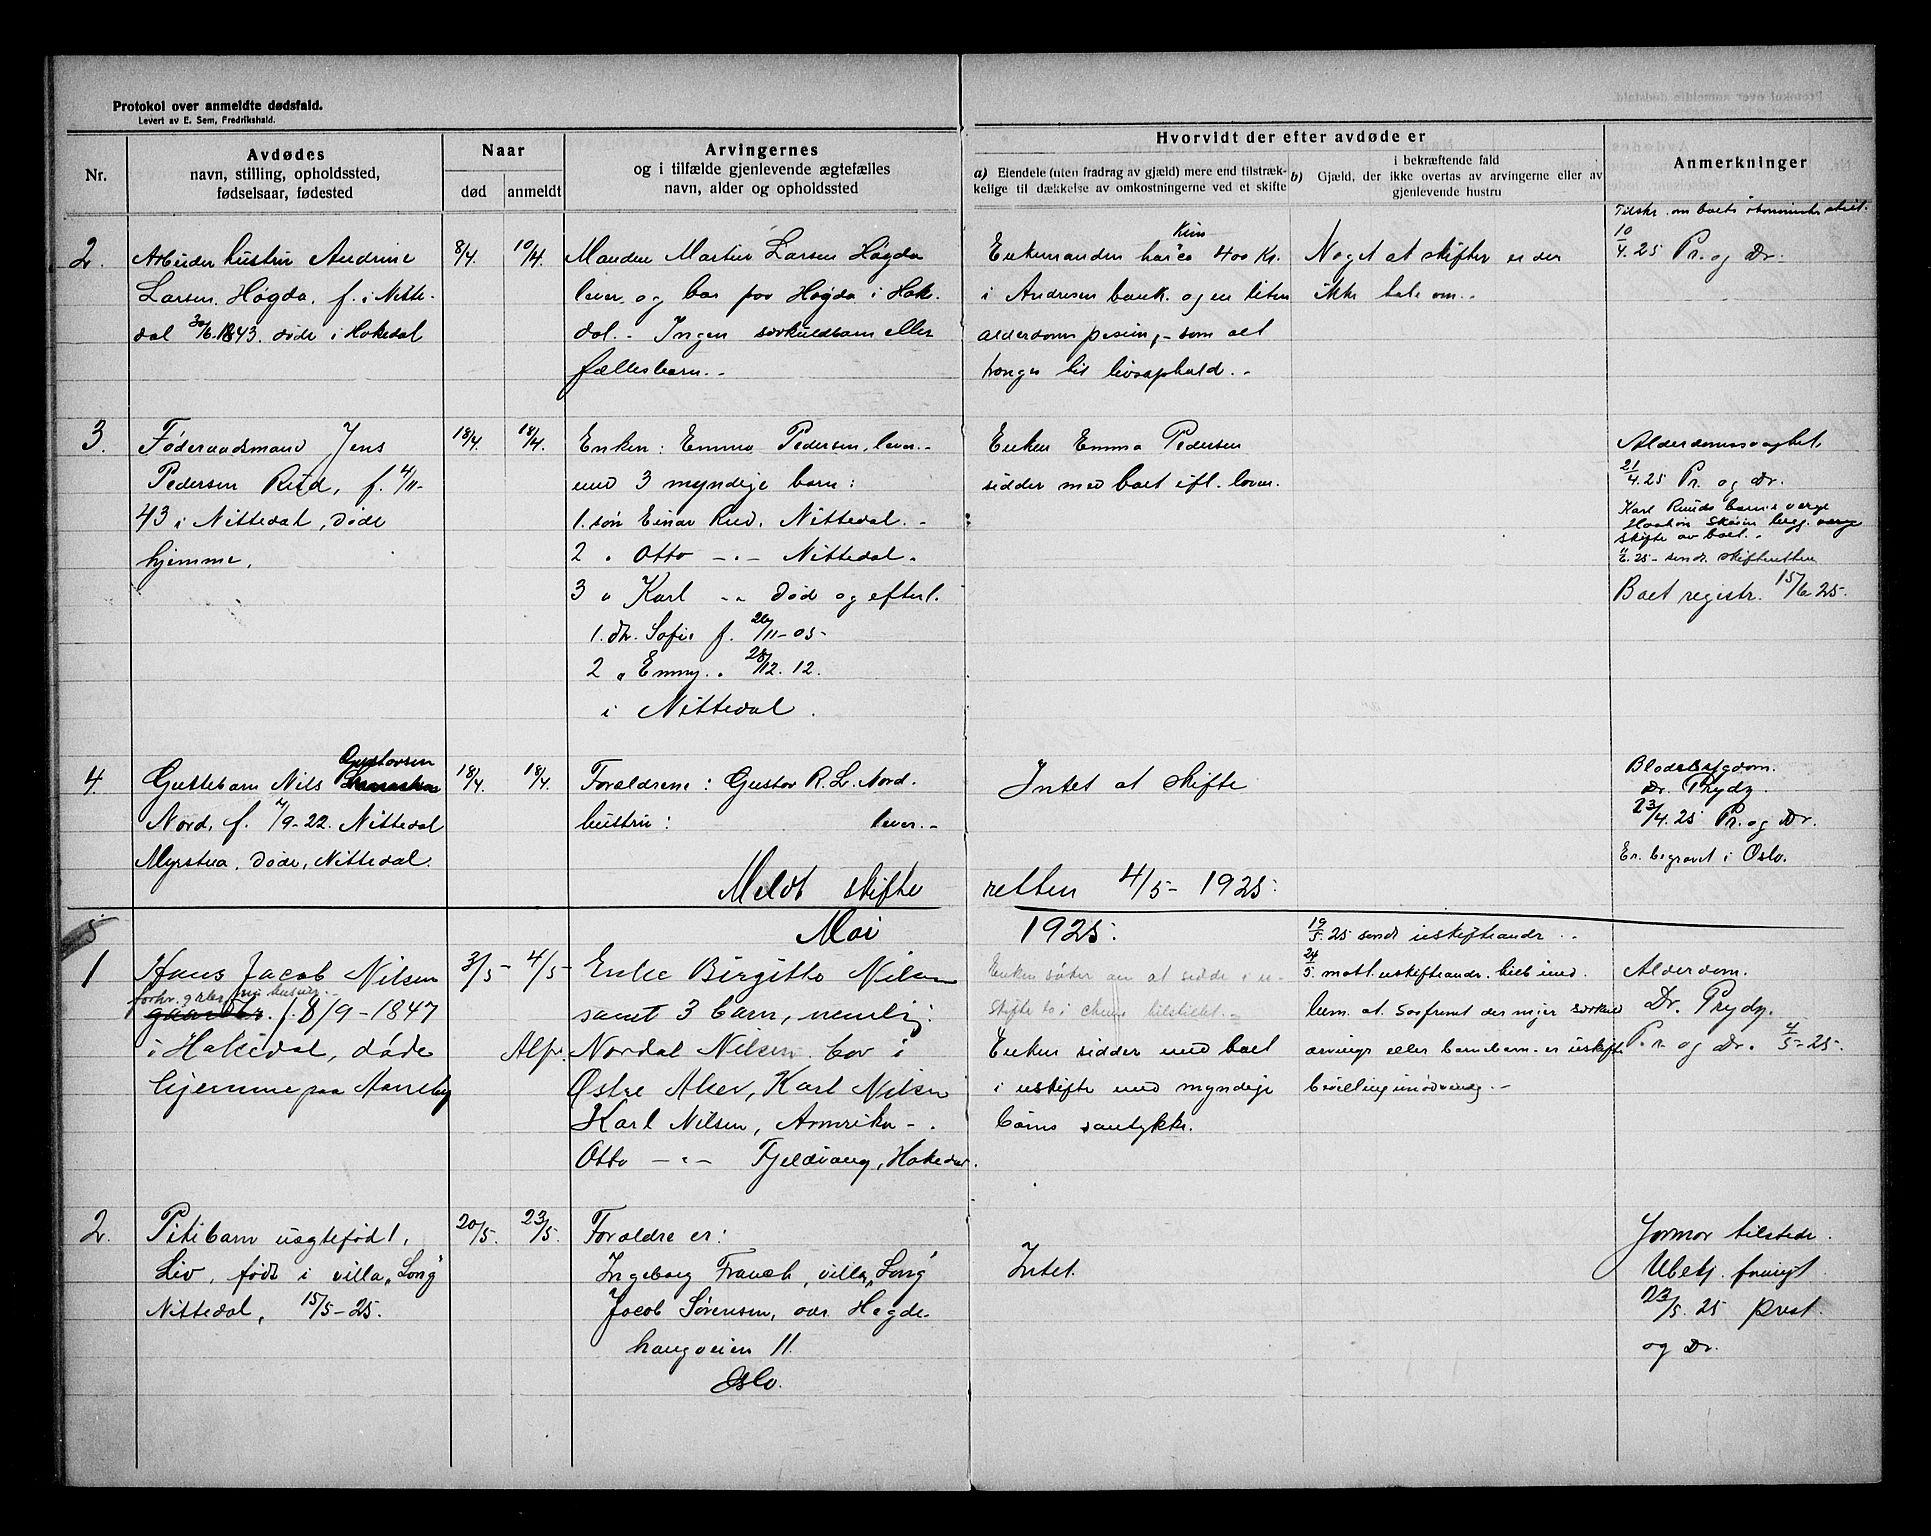 Protokol over anmeldte dødsfald.
Levert av E. Sem, Fredrikshald.
Nr.
Avdødes
navn, stilling, opholdssted,
fødselsaar, fødested
Naar
død
anmeldt
Arvingernes
og i tilfælde gjenlevende ægtefælles
navn, alder og opholdssted
Hvorvidt der efter avdøde er
a) Eiendele (uten fradrag av gjæld) mere end tilstræk-
kelige til dækkelse av omkostningerne ved et skifte
i bekræftende fald
b) Gjæld, der ikke overtas av arvingerne eller av
gjenlevende hustru
Anmerkninger
2.
Arbeider hustru Andrine
Larsen Høgda, f. i Nitte-
dal 30/6.1843. døde i Hakedal
8/4.
10/4.
Manden Martin Larsen Høgda
lever og bor paa Høgda i Hak.
dal. - Ingen særkuldbarn eller
fællesbarn. -
Enkemanden har ca 400 Kr.
i Andresen bank. og en liten
alderdoms pesion, - som alt
trenges til livsophold. -
Noget at skifte er der
ikke tale om. -
10/4.25 Pr. og Dr.
3.
Føderaadsmand Jens
Pedersen Rud, f. 4/11-
43 i Nittedal, døde
hjemme.
18/4.
18/4.
Enken: Emma Pedersen, lever. -
med 3 myndige barn:
1. søn Einar Rud, Nittedal. -
2 " Otto - " - Nittedal -
3 " Karl - " død og efterl.
1. dtr. Sofie f. 26/11-05-
2 " Emmy " 28/12.12.
i Nittedal.
Enken Emma Pedersen
sidder med boet ifl. loven.
Alderdomssvaghet.
21/4.25 Pr. og Dr.
Karl Ruuds barn's verge
skifte av boet. -
25- sendt skifteretten
Boet registr. 15/6 25.
4.
Guttebarn Nils Gustavsen
Nord, f. 4/9-22. Nittedal
Myrstua, døde, Nittedal.
18/4.
18/4.
Forældrene: Gustav R. L. Nord.
hustru: lever. -
Intet at skifte
Dr. Prydz.
23/4.25 Pr. og Dr.
Er begravet i Oslo.
Meldt skifte retten 4/5- 1925.
Mai 1925.
5
1
Hans Jacob Nilsen
f. 8/9-1847
i Hakedal, døde
hjemme paa Aaneby
3/5-
4/5-
Enke Birgitte Nilsen
samt 3 barn, nemlig:
Alfr. Nordal Nilsen, bor i
Østre Aker, Karl Nilsen
Karl Nilsen, Amerika -.
Otto - " - Fjeldvang, Hakedal.
Enken søker om at sidde i u-
skifte
Enken sidder med boet
i uskifte med myndige
børns samtykke.
19/5.25 sendt uskifteandr. -
24/5. mott. uskifteandr. tilb. med
bem. at saafremt der ingen særkuld
arvinge eller barnebarn er uskifte
bevilling unødvendig. -
Alderdom.
Dr. Prydz.
Pr. og Dr. 4/5-25.
2.
Pikebarn uegtefødt,
Liv, født i villa "Solig"
Nittedal, 15/5-25.
20/5.
23/5.
Forældre er:
Ingeborg Franck, villa
Jacob Sørensen, Hegde-
haugveien 11.
Oslo.
Intet.
Jormor tilstede.
23/5.25 prest.
og Dr.